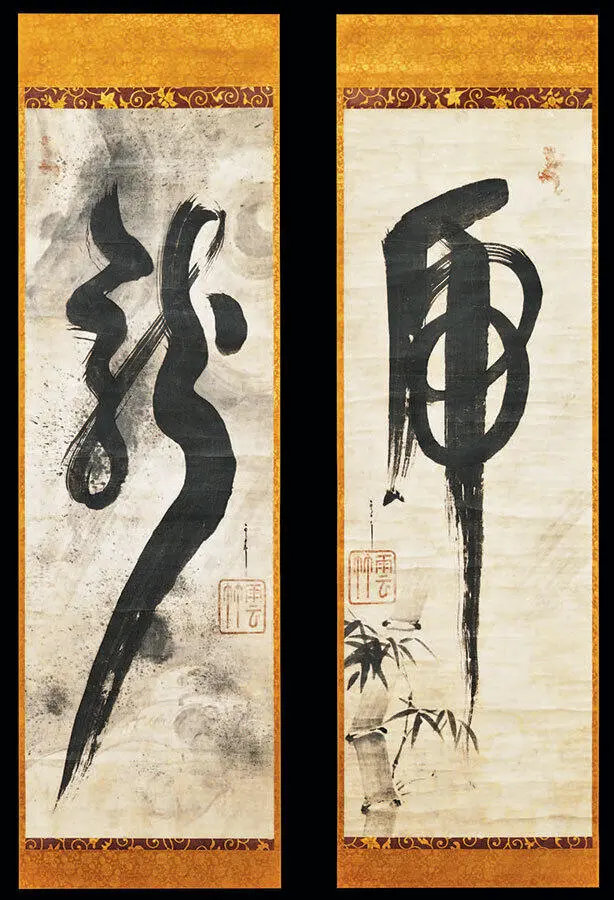 龍
雲竹
虎
雲竹